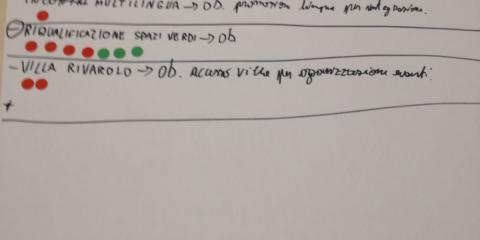 INCONTRI MULTILINGUA → OB. promozione lingue per
- RIQUALIFICAZIONE SPAZI VERDI → Ob
- VILLA RIVAROLO → Ob. Accesso ville per organizzazione eventi.